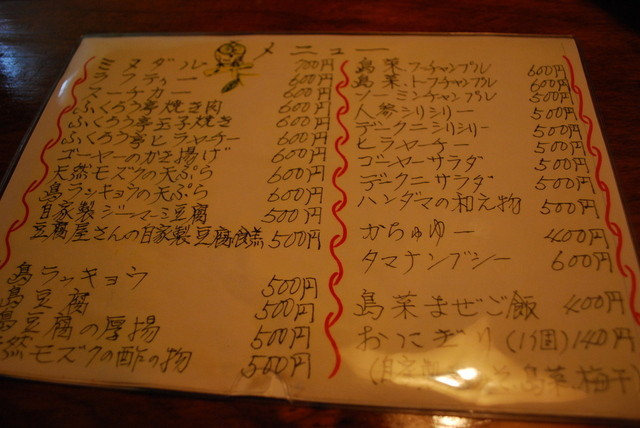 メニュー
ミヌダル 700円
ラフティー 600円
スーチカー 600円
ふくろう亭焼き肉 600円
ふくろう亭玉子焼き 600円
ふくろう亭ヒラヤーチー 600円
ゴーヤーのかき揚げ 600円
天然モズクの天ぷら 600円
島ラッキョウの天ぷら 600円
自家製ジーマーミ豆腐 500円
豆腐屋さんの自家製豆腐 500円
島ラッキョウ 500円
島豆腐 500円
島豆腐の厚揚 500円
然モズクの酢の物 500円
島菜フーチャンプル 600円
島菜トフチャンプル 600円
ソーミンチャンプル 500円
人参シリシリー 500円
デークニシリシリー 500円
ヒラヤーチー 500円
ゴーヤサラダ 500円
デークニサラダ 500円
ハンダマの和え物 500円
かちゅゆー 400円
タマナンブシー 600円
島菜まぜご飯 400円
おにぎり(1個)140円
島菜,梅干)